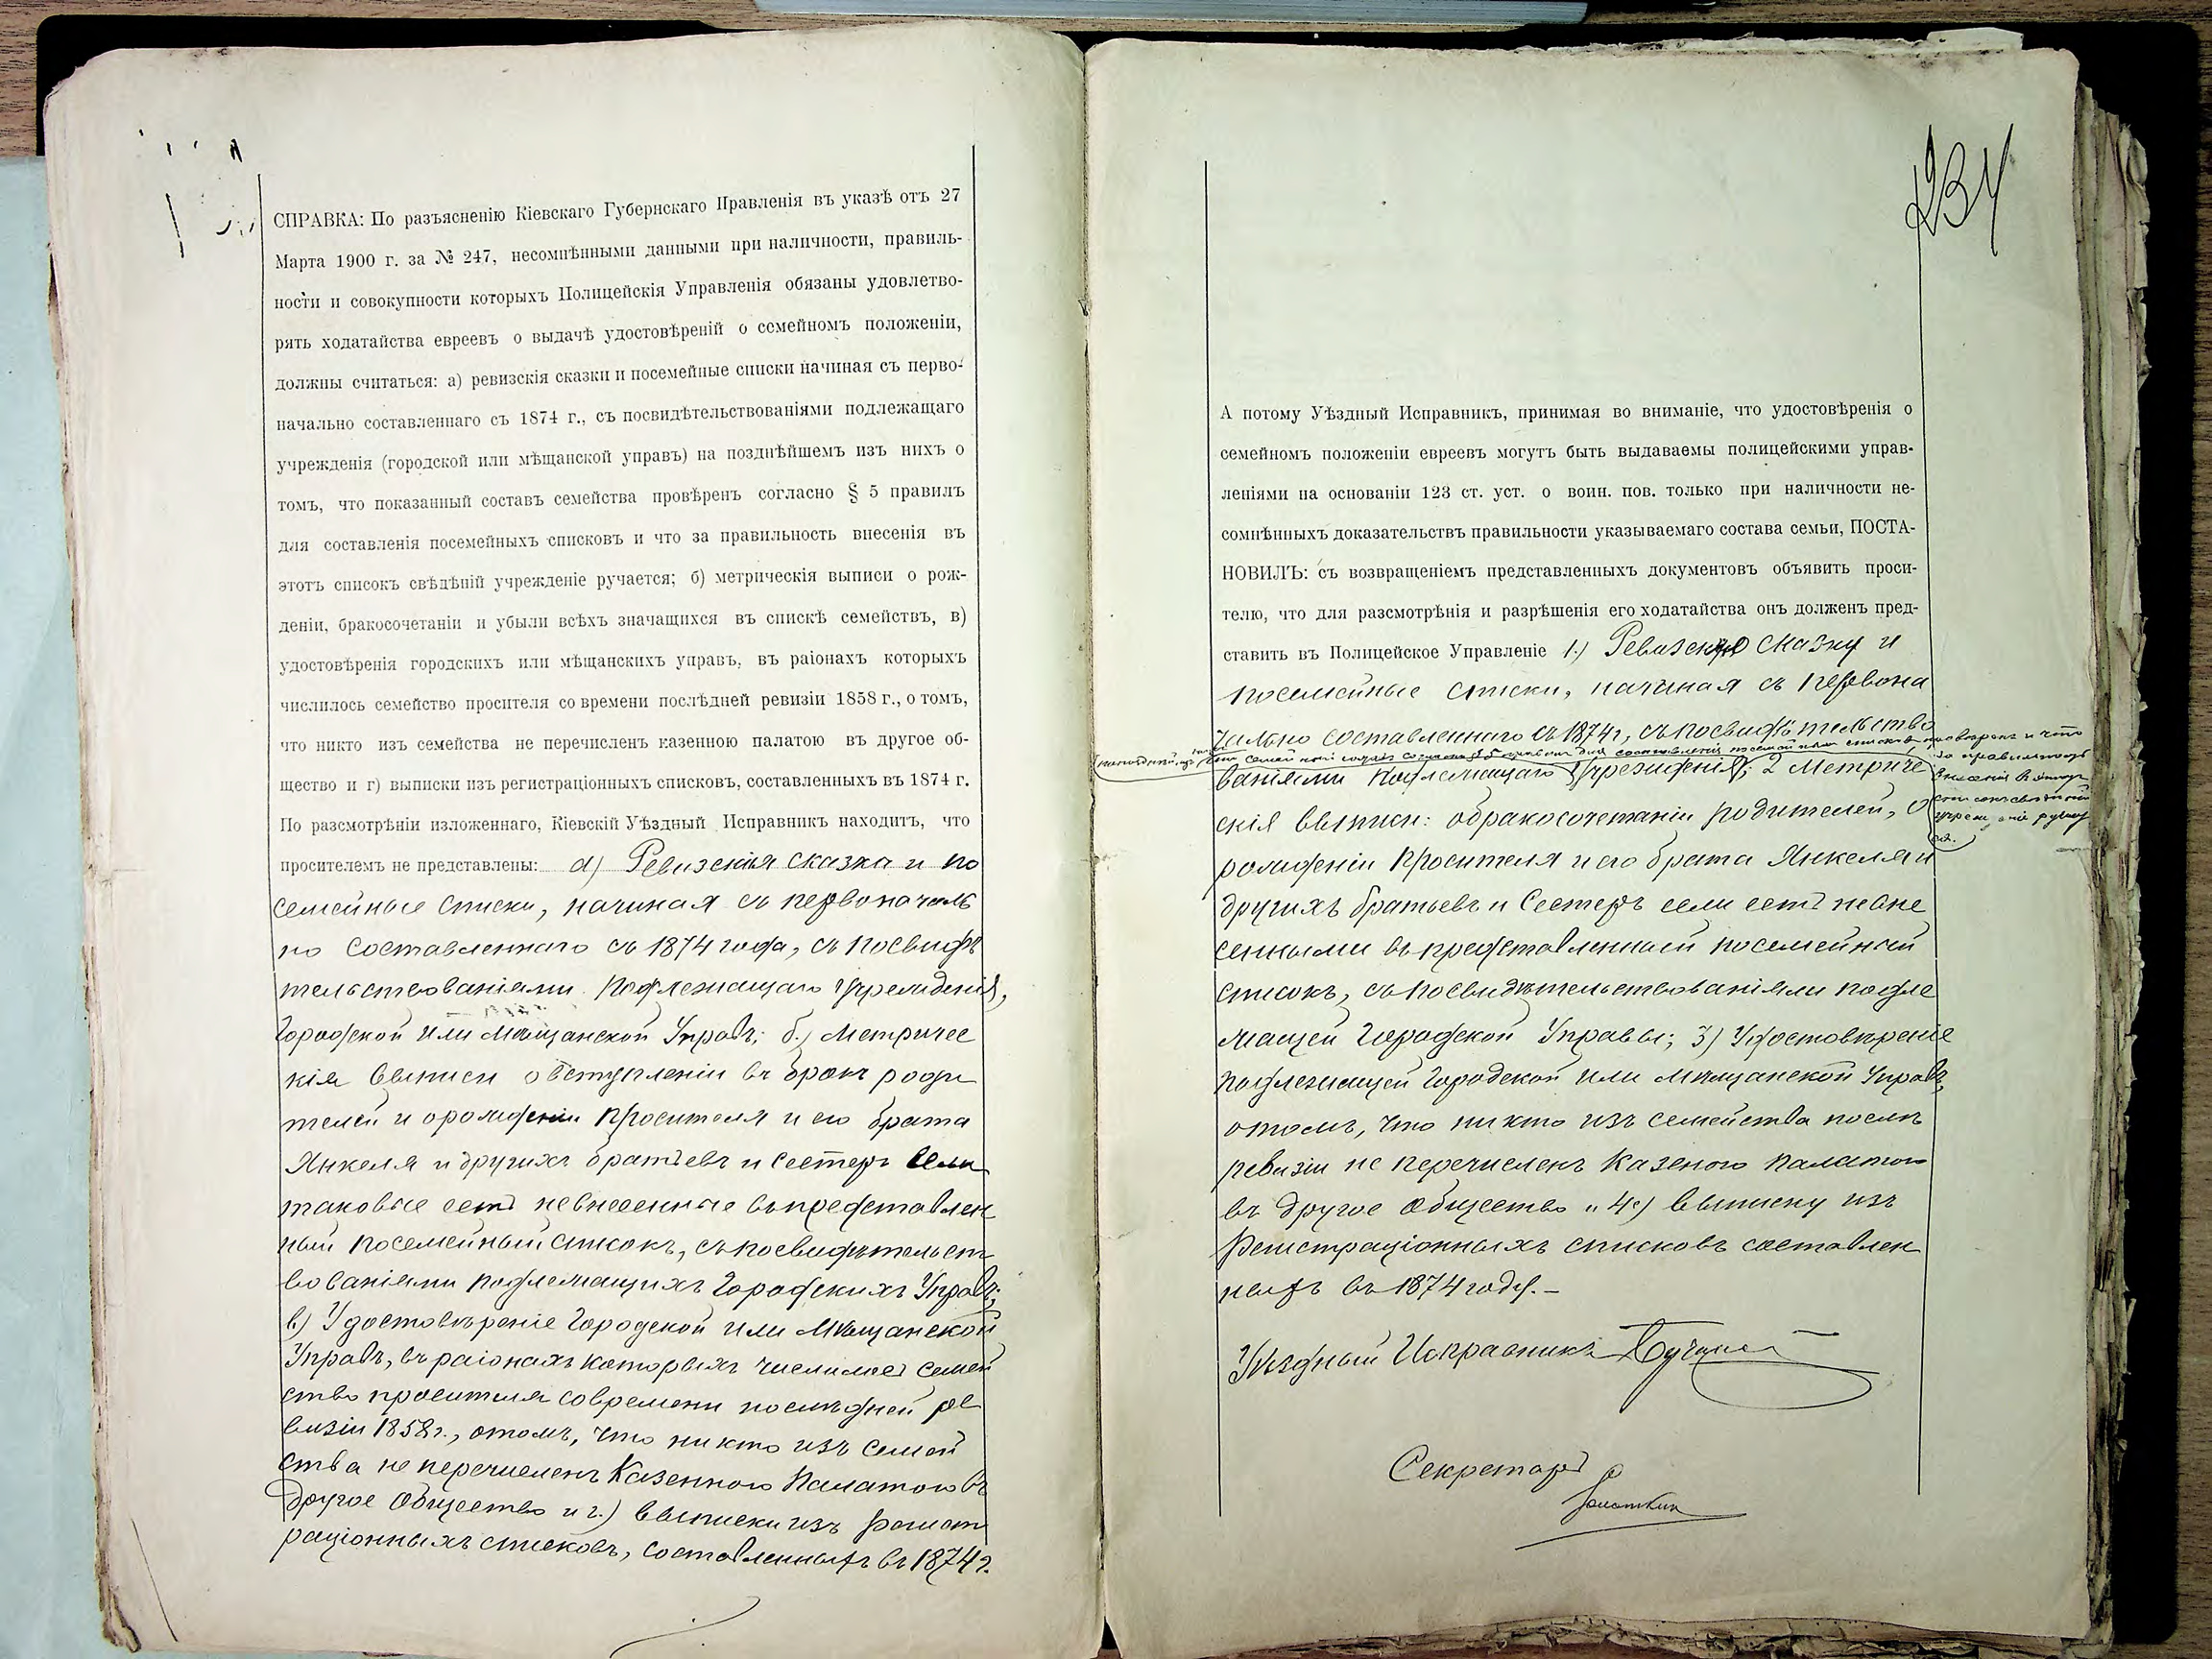 СПРАВКА: По разъясненію Кіевскаго Губернскаго Правленія въ указѣ отъ 27
Марта 1900 г. за № 247, несомнѣнными данными при наличности, правиль-
ности и совокупности которыхъ Полицейскія Управленія обязаны удовлетво-
рять ходатайства евреевъ о выдачѣ удостовѣреній о семейномъ положеніи,
должны считаться: а) ревизскія сказки и посемейные списки начиная съ перво-
начально составленнаго съ 1874 г., съ посвидѣтельствованіями подлежащаго
учрежденія (городской или мѣщанской управъ) на позднѣйшемъ изъ нихъ о
томъ, что показанный составъ семейства провѣренъ согласно § 5 правилъ
для составленія посемейныхъ списковъ и что за правильность внесенія въ
этотъ списокъ свѣдѣній учрежденіе ручается; б) метрическія выписи о рож-
деніи, бракосочетаніи и убыли всѣхъ значащихся въ спискѣ семействъ, в)
удостовѣренія городскихъ или мѣщанскихъ управъ, въ раіонахъ которыхъ
числилось семейство просителя со времени послѣдней ревизіи 1858 г., о томъ,
что никто изъ семейства не перечисленъ казенною палатою въ другое об-
щество и г) выписки изъ регистраціонныхъ списковъ, составленныхъ въ 1874 г.
По разсмотрѣніи изложеннаго, Кіевскій Уѣздный Исправникъ находитъ, что
просителемъ не представлены: а) Ревизскія сказка и по
семейные списки, начиная съ первоначаль
но составленнаго съ 1874 года, съ посвидѣ
тельствованіями подлежащаго Учрежденія,
Городской или Мѣщанской Управъ; б.) Метричес
кія выписи о вступленіи въ бракъ роди
телей и о рожденіи просителя и его брата
Янкеля и другихъ братьевъ и сестеръ если
таковые есть невнесенные въ представлен
ный посемейный списокъ, съ посвидѣтельст
вованіями подлежащихъ Городскихъ Управъ;
в) Удостовѣреніе Городской или Мѣщанской
Управъ, въ раіонахъ которыхъ числилось семей
ство просителя со времени послѣдней ре
визіи 1858 г., о томъ, что никто изъ семей
ства не перечисленъ Казенною Палатою въ
другое Общество и г.) выписки изъ регист
раціонныхъ списковъ, составленныхъ въ 1874 г.
234
А потому Уѣздный Исправникъ, принимая во вниманіе, что удостовѣренія о
семейномъ положеніи евреевъ могутъ быть выдаваемы полицейскими управ-
леніями на основаніи 123 ст. уст. о воин. пов. только при наличности не-
сомнѣнныхъ доказательствъ правильности указываемаго состава семьи, ПОСТА-
НОВИЛЪ: съ возвращеніемъ представленныхъ документовъ объявить проси-
телю, что для разсмотрѣнія и разрѣшенія его ходатайства онъ долженъ пред-
ставить въ Полицейское Управленіе 1.) Ревизскую сказку и
посемейные списки, начиная съ первона
чально составленнаго съ 1874 г, съ посвидѣтельство
семейный составъ согласно § 5 правилъ для составленія посемейныхъ списковъ провѣренъ и что
за правильность
внесенія въ этотъ
списокъ свѣдѣній
учрежденіе ручает
ся.
ваніями подлежащаго Учрежденія; 2 Метриче
скія выписи: о бракосочетаніи родителей, о
рожденіи просителя и его брата Янкеля и
другихъ братьевъ и сестеръ если есть невне
сенными въ представленный посемейный
списокъ, съ посвидѣтельствованіями подле
жащей Городской Управы; 3) Удостовѣреніе
подлежащей Городской или Мѣщанской Управъ,
о томъ, что никто изъ семейства послѣ
ревизіи не перечисленъ Казеною Палатою
въ другое Общество и 4.) выписку изъ
Регистраціонныхъ списковъ составлен
ныхъ въ 1874 году.-
Уѣздный Исправникъ
Секретарь